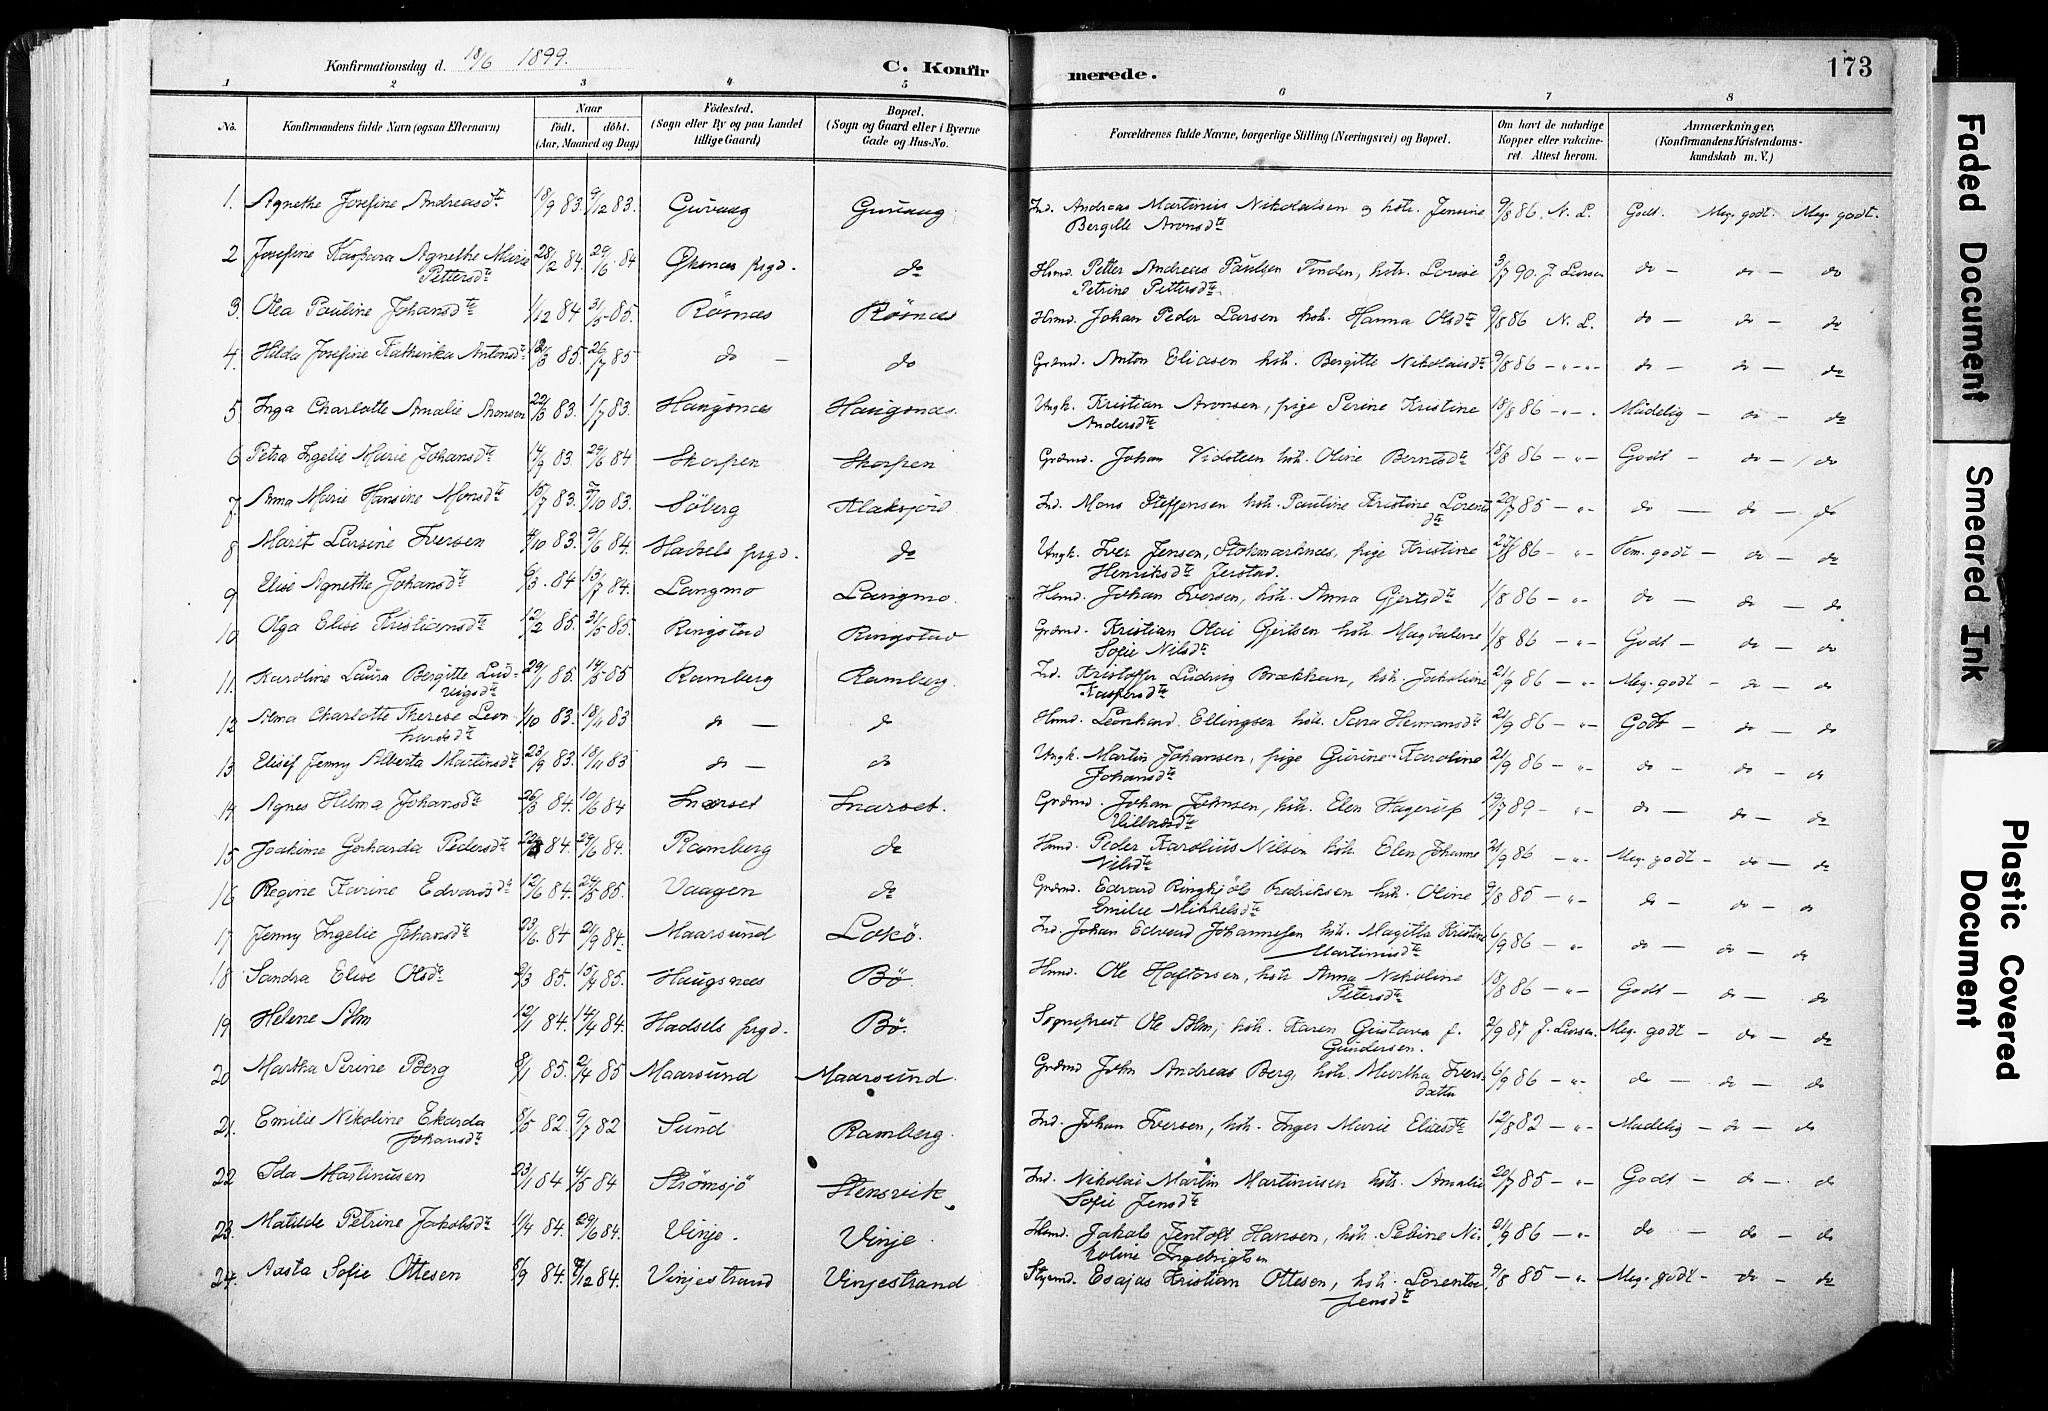 Konfirmationsdag d. 18/6 1899.
C. Konfirmerede.
173
1 2 3 4 5 6 7 8
No. Konfirmandens fulde Navn (ogsaa Efternavn) Naar født. døbt. (Aar, Maaned og Dag) Fødested. (Sogn eller By og paa Landet tillige Gaard) Bopæl. (Sogn og Gaard eller i Byerne Gade og Hus-No. Forældrenes fulde Navne, borgerlige Stilling (Næringsvei) og Bopæl. Om havt de naturlige Kopper eller vakcineret. Attest herom. Anmærkninger. (Konfirmandens Kristendomskundskab m. V.)
1. Agnethe Josefine Andreasdtr 18/9 83. 9/12 83. Guvaag Guvaag Ind. Andreas Martinius Nikolaisen & hstr. Jensine Bergitte Aronsdtr 9/8 86. N. L. Godt. Meg. godt. Meg. godt.
2 Josefine Kaspara Agnethe Marie Pettersdtr 28/2 84. 29/6 84 Øksnes prgd. do Hsmd. Petter Andreas Paulsen Tinden, hstr. Lovise Petrine Pettersdtr 3/7 90. J. Larsen do - do - do
3. Olea Pauline Johansdtr 1/12 84 31/5 85. Røsnes Røsnes Hsmd. Johan Peder Larsen hstr. Hanna Olsdtr 9/8 86 N. L. do - do - do
4. Hilda Josefine Katherika Antonsdtr 12/3 85. 26/7 85 do - do Grdmd. Anton Eliasen hstr. Bergitte Nikolaisdtr 9/8 86 - " - do - do - do
5 Inga Charlotte Amalie Aronsen 22/3 83. 1/7 83. Haugsnes Haugsnes. Ungk. Kristian Aronsen, pige Serine Kristine Andersdtr 18/8 86 - " - Maadelig - do - do
6 Petra Ingelie Marie Johansdtr 14/9 83. 29/6 84 Skorpen Skorpen Grdmd. Johan Vidsteen hstr. Oline Berntsdtr 18/8 86 - " - Godt - do - do
7 Anna Marie Hansine Monsdtr 15/7 83. 7/10 83. Søberg Alaksjord Ind. Mons Steffensen hstr. Pauline Kristine Lorentsdtr 20/7 85 - " - do - do - do
8 Marit Larsine Iversen 4/10 83. 9/6 84. Hadsels prgd. do Ungk. Iver Jensen, Stokmarknes, pige Kristine Henriksdtr Jerstad. 86 - " - Tem. godt - do - do
9 Elise Agnethe Johansdtr 6/3 84 13/7 84. Langmo Langmo. Hsmd. Johan Iversen, hstr. Anna Gjertsdtr 1/8 86 - " - do - do - do
10 Olga Elise Kristiansdtr 12/2 85. 31/5 85. Ringstad Ringstad Grdmd. Kristian Olai Gjertsen hstr. Magdalene Sofie Nilsdtr 1/8 86 - " - Godt - do - do
11. Karoline Laura Bergitte Ludvigsdtr 29/1 85. 14/5 85 Ramberg Ramberg. Ind. Kristoffer Ludvig Brækkan, hstr. Jakobine Kaspersdtr 21/9 86 - " - Meg. godt - do - do
12 Alma Charlotte Therese Leonhardsdtr 1/10 83. 18/11 83 do - do Hsmd. Leonhard Ellingsen hstr. Sara Hermansdtr 21/9 86 - " - Godt - do - do
13 Elisif Jenny Alberta Martinsdtr 23/9 83. 18/11 83 do - do Ungk. Martin Johansen, pige Gurine Karoline Johansdtr 21/9 86 - " - do - do - do
14 Agnes Helma Johansdtr 26/3 84. 19/6 84 Snarset Snarset. Grdmd. Johan Johnsen, hstr. Elen Hagerup Villadsdtr 19/7 89 - " - do - do - do
15 Joakime Gerharda Pedersdtr 22/3 84. 29/6 84. Ramberg do Hsmd. Peder Karolius Nilsen hstr. Elen Johanne Nilsdtr 21/9 86 - " - Meg. godt - do - do
16 Regine Karine Edvardsdtr 12/6 84. 29/5 85. Vaagen do Grdmd. Edvard Ringkjøb Fredriksen hstr. Oline Emilie Mikkelsdtr 9/8 85 - " - do - do - do
17 Jenny Ingelie Johansdtr 23/6 84 21/9 84. Maarsund Lokø. Ind. Johan Edvard Johannesen hstr. Magitta Kristine Martinusdtr 6/9 86 - " do - do - do
18 Sandra Elise Olsdtr 2/3 85. 15/4 85. Haugsnes Bø. Hsmd. Ole Haftorsen, hstr. Anna Nikoline Petersdtr 18/8 86 - " - Godt - do - do
19 Helene Alm 12/1 84. 14/4 84. Hadsels prgd. Bø. Sogneprest Ole Alm, hstr. Karen Gustava f. Gundersen. 2/9 87 J. Larsen. Meg. godt - do - do
20 Martha Serine Berg 8/1 85. 2/4 85 Maarsund Maarsund. Grdmd John Andreas Berg, hstr. Martha Iversdatter 6/9 86 - " - do - do - do
21. Emilie Nikoline Ekarda Johansdtr 8/5 82. 9/7 82 Sund Ramberg. Ind. Johan Iversen, hstr. Inger Marie Eliasdtr 12/8 82 - " - Madelig - do - do
22 Ida Martinusen 23/1 84 4/5 84 Strømsjø Stensvik Ind. Nikolai Martin Martinusen hstr. Amalie Sofie Jensdtr 20/7 85 - " - Godt - do - do
23. Matilde Petrine Jakobsdtr 11/4 84. 29/6 84. Vinje. Vinje Hsmd. Jakob Jentoft Hansen, hstr. Sebine Nikoline Ingebrigtsen 21/9 86 - " - do - do - do
24. Aasta Sofie Ottesen 8/9 84. 7/12 84. Vinjestrand Vinjestrand Styrmd. Esajas Kristian Ottesen, hstr. Lorentse Jensdtr 9/8 85 - " - Meg. godt - do - do
Faded Document
Smeared Ink
Plastic Covered Document